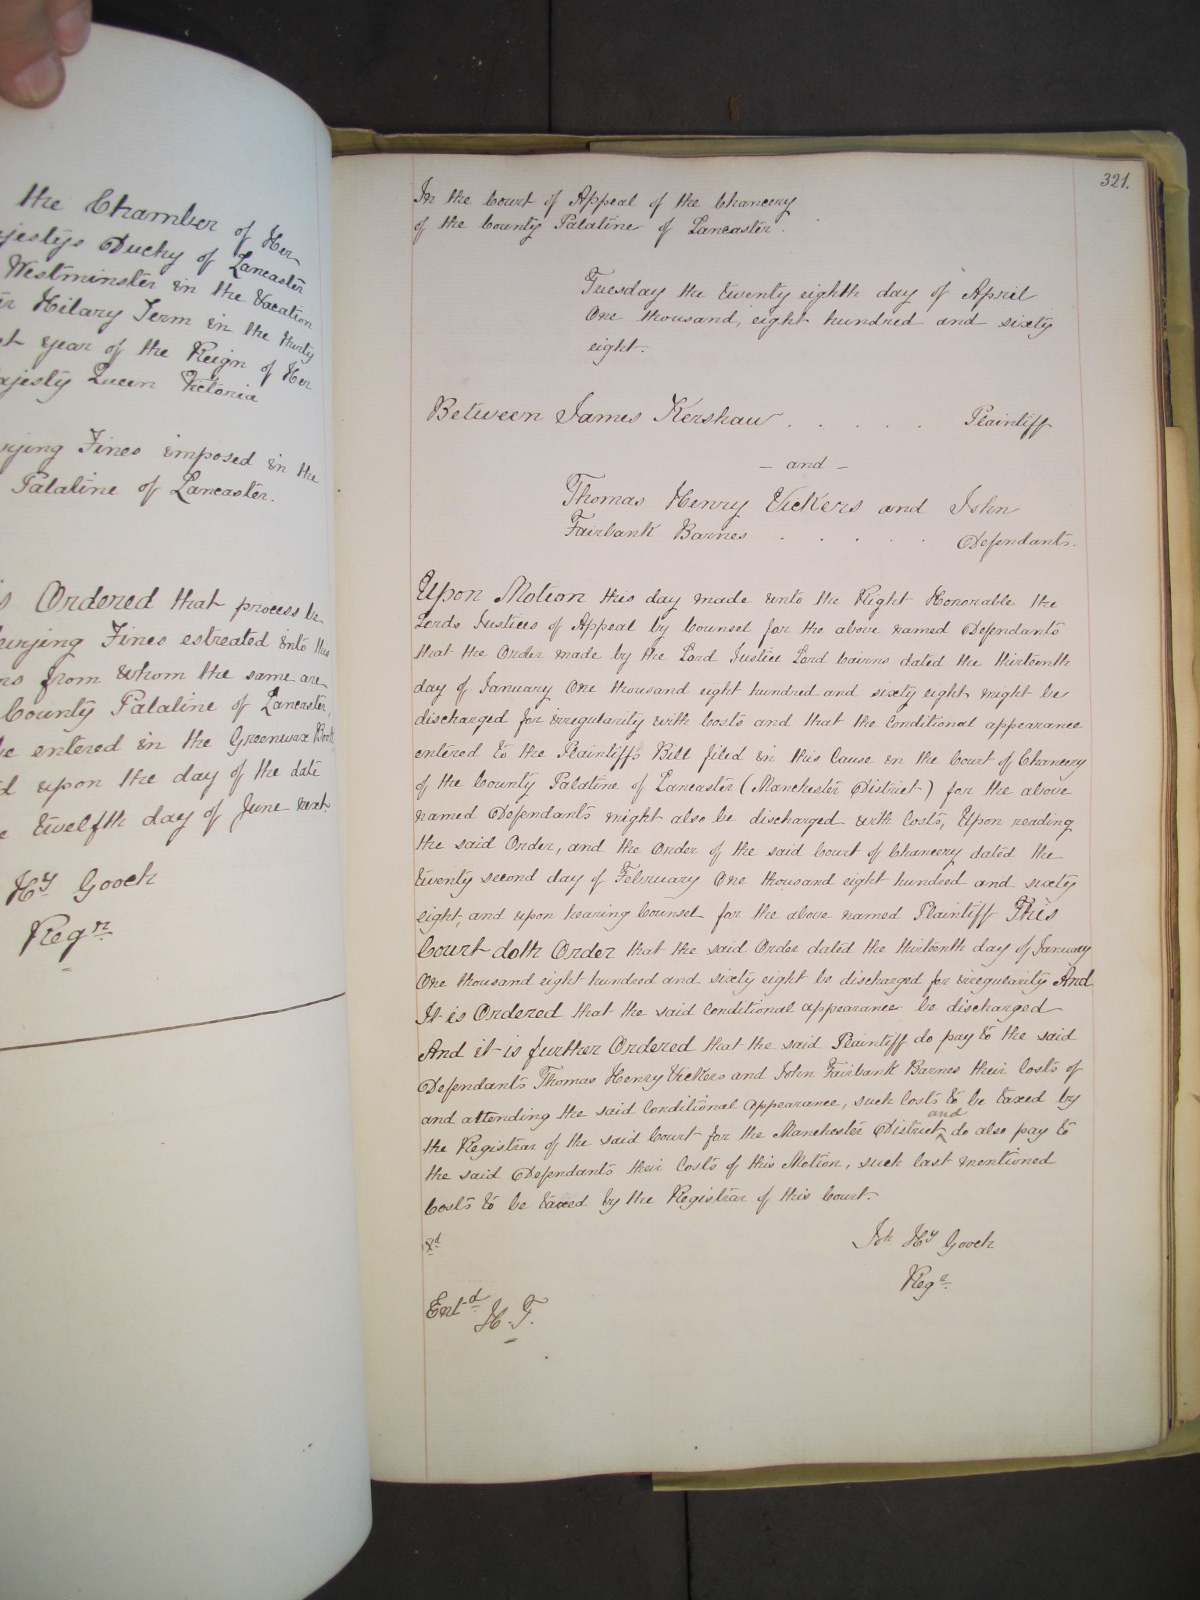 the Chamber of Her
jestys Duchy of Lancaster
Westminster in the Vacation
Hilary Term in the thirty
year of the Reign of Her
ajesty Queen Victoria
rying Fines imposed in the
Palatine of Lancaster.
Ordered that process be
Fines estreated into the
from whom the same are
County Palatine of Lancaster,
be entered in the Greenwax Book
upon the day of the date
twelfth day of June next.
Hy Gooch
Regr
321.
In the Court of Appeal of the Chancery
of the County Palatine of Lancaster.
Tuesday the twenty eighth day of April
One thousand, eight hundred and sixty
eight.
Between James Kershaw . . . . . Plaintiff
– and –
Thomas Henry Vickers and John
Fairbank Barnes . . . . . Defendants.
Upon Motion this day made unto the Right Honorable the
Lords Justices of Appeal by Counsel for the above named Defendants
that the Order made by the Lord Justice Lord Cairns dated the thirteenth
day of January One thousand eight hundred and sixty eight might be
discharged for irregularity with Costs and that the Conditional appearance
entered to the Plaintiff's Bill filed in this Cause in the Court of Chancery
of the County Palatine of Lancaster (Manchester District) for the above
named Defendants might also be discharged with Costs, Upon reading
the said Order, and the Order of the said Court of Chancery dated the
twenty second day of February One thousand eight hundred and sixty
eight, and upon hearing Counsel for the above named Plaintiff This
Court doth Order that the said Order dated the thirteenth day of January
One thousand eight hundred and sixty eight be discharged for irregularity And
It is Ordered that the said Conditional appearance be discharged
And it is further Ordered that the said Plaintiff do pay to the said
Defendants Thomas Henry Vickers and John Fairbank Barnes their Costs of
and attending the said Conditional Appearance, such Costs to be taxed by
the Registrar of the said Court for the Manchester District and do also pay to
the said Defendants their Costs of this Motion, such last mentioned
Costs to be taxed by the Registrar of this Court.
Hy Gooch
Regr
Entd
H. F.